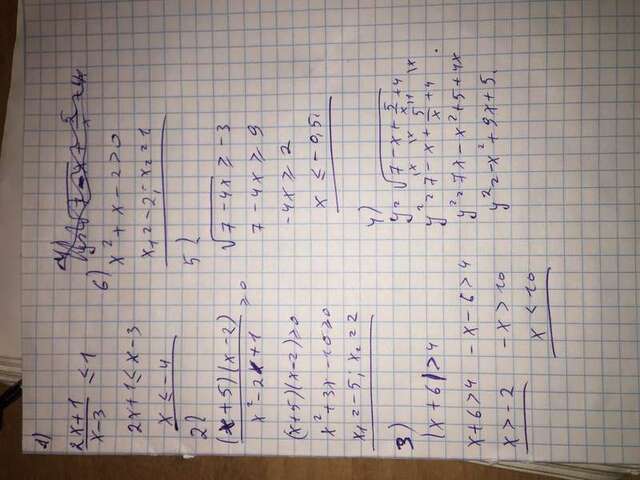 1)
2x+1
x-3
≤1
2x+1≤x-3
x≤-4
2)
(x+5)(x-2)
x²-2x+1
≥0
(x+5)(x-2)≥0
x²+3x-10≥0
x₁=-5, x₂=2
3)
|x+6|>4
x+6>4 -x-6>4
x>-2 -x>10
x<10
6)
x²+x-2>0
x₁=-2, x₂=1
5)
√7-4x≥-3
7-4x≥9
-4x≥2
x≤-0,5
4)
y=√7-x+5/x+4
y²=7-x+5/x+4
y²=7x-x²+5+4x
y²=-x²+9x+5